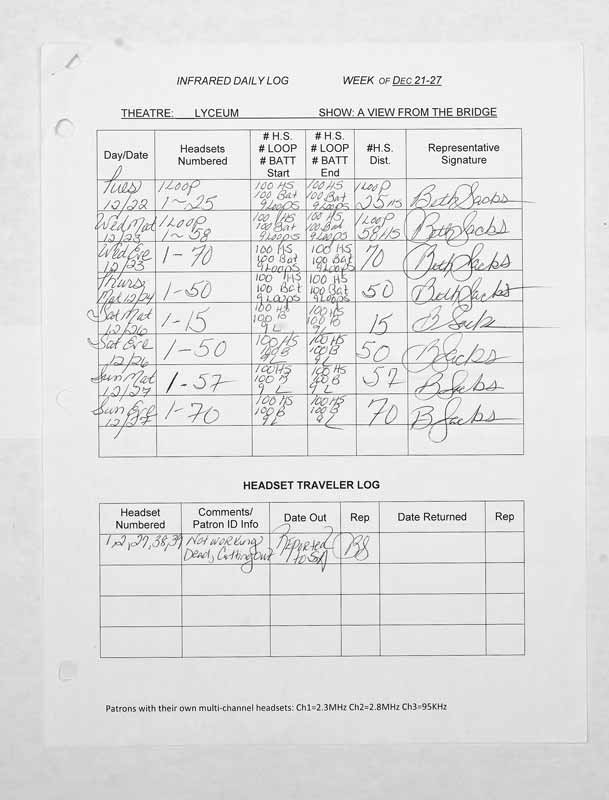 INFRARED DAILY LOG WEEK OF DEC 21-27
THEATRE: LYCEUM SHOW: A VIEW FROM THE BRIDGE
Day/Date Headsets Numbered # H.S. # LOOP # BATT Start # H.S. # LOOP # BATT End #H.S. Dist. Representative Signature
Tues 12/22 1 Loop 1~25 100 HS 100 Bat 9 Loops 100 HS 100 Bat 9 Loops 1 Loop 25 HS Beth Sacks
Wed Mat 12/23 1 Loop 1~58 100 HS 100 Bat 9 Loops 100 HS 100 Bat 9 Loops 1 Loop 58 HS Beth Sacks
Wed Eve 12/23 1-70 100 HS 100 Bat 9 Loops 100 HS 100 Bat 9 Loops 70 Beth Sacks
Thurs Mat 12/24 1-50 100 HS 100 Bat 9 Loops 100 HS 100 Bat 9 Loops 50 Beth Sacks
Sat Mat 12/26 1-15 100 HS 100 B 9 L 100 HS 100 B 9L 15 B Sack
Sat Eve 12/26 1-50 100 HS 100 B 9L 100 HS 100 B 9L 50 B Sacks
Sun Mat 12/27 1-57 100 HS 100 B 9 L 100 HS 100 B 9 L 57 B Sacks
Sun Eve 12/27 1-70 100 HS 100 B 9 L 100 HS 100 B 9 L 70 B Sacks
HEADSET TRAVELER LOG
Headset Numbered Comments/ Patron ID Info Date Out Rep Date Returned Rep
1,2,27,38,39 Not working Dead, Cutting Out Reported to SA BS
Patrons with their own multi-channel headsets: Ch1=2.3MHz Ch2=2.8MHz Ch3=95KHz